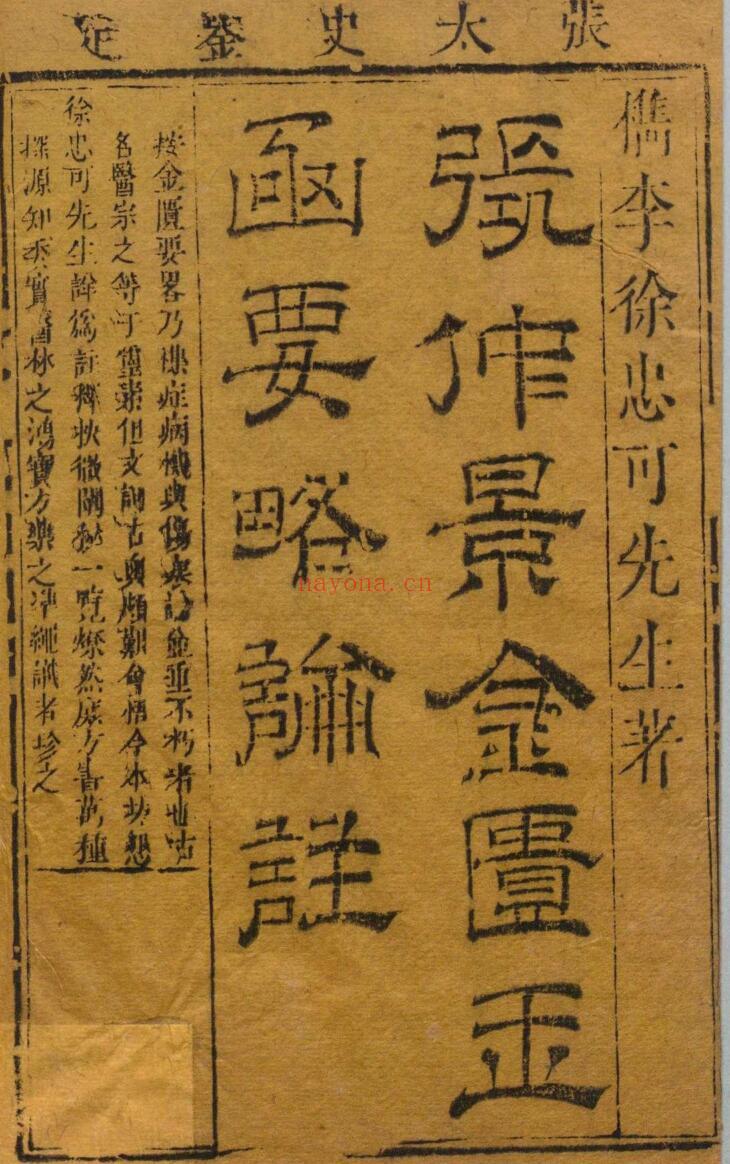 張太史鑒定
儁李徐忠可先生著
張仲景金匱玉
函要略論註
按金匱要畧乃雜症病機與傷寒論並垂不朽者也古
名醫宗之等于靈素但文詞古奧頗難會悟今本坊懇
徐忠可先生詳爲註釋抉微闡秘一覽燎然庶方書萬種
探源知委實醫林之鴻寶方藥之凖繩識者珍之
nayona.cn